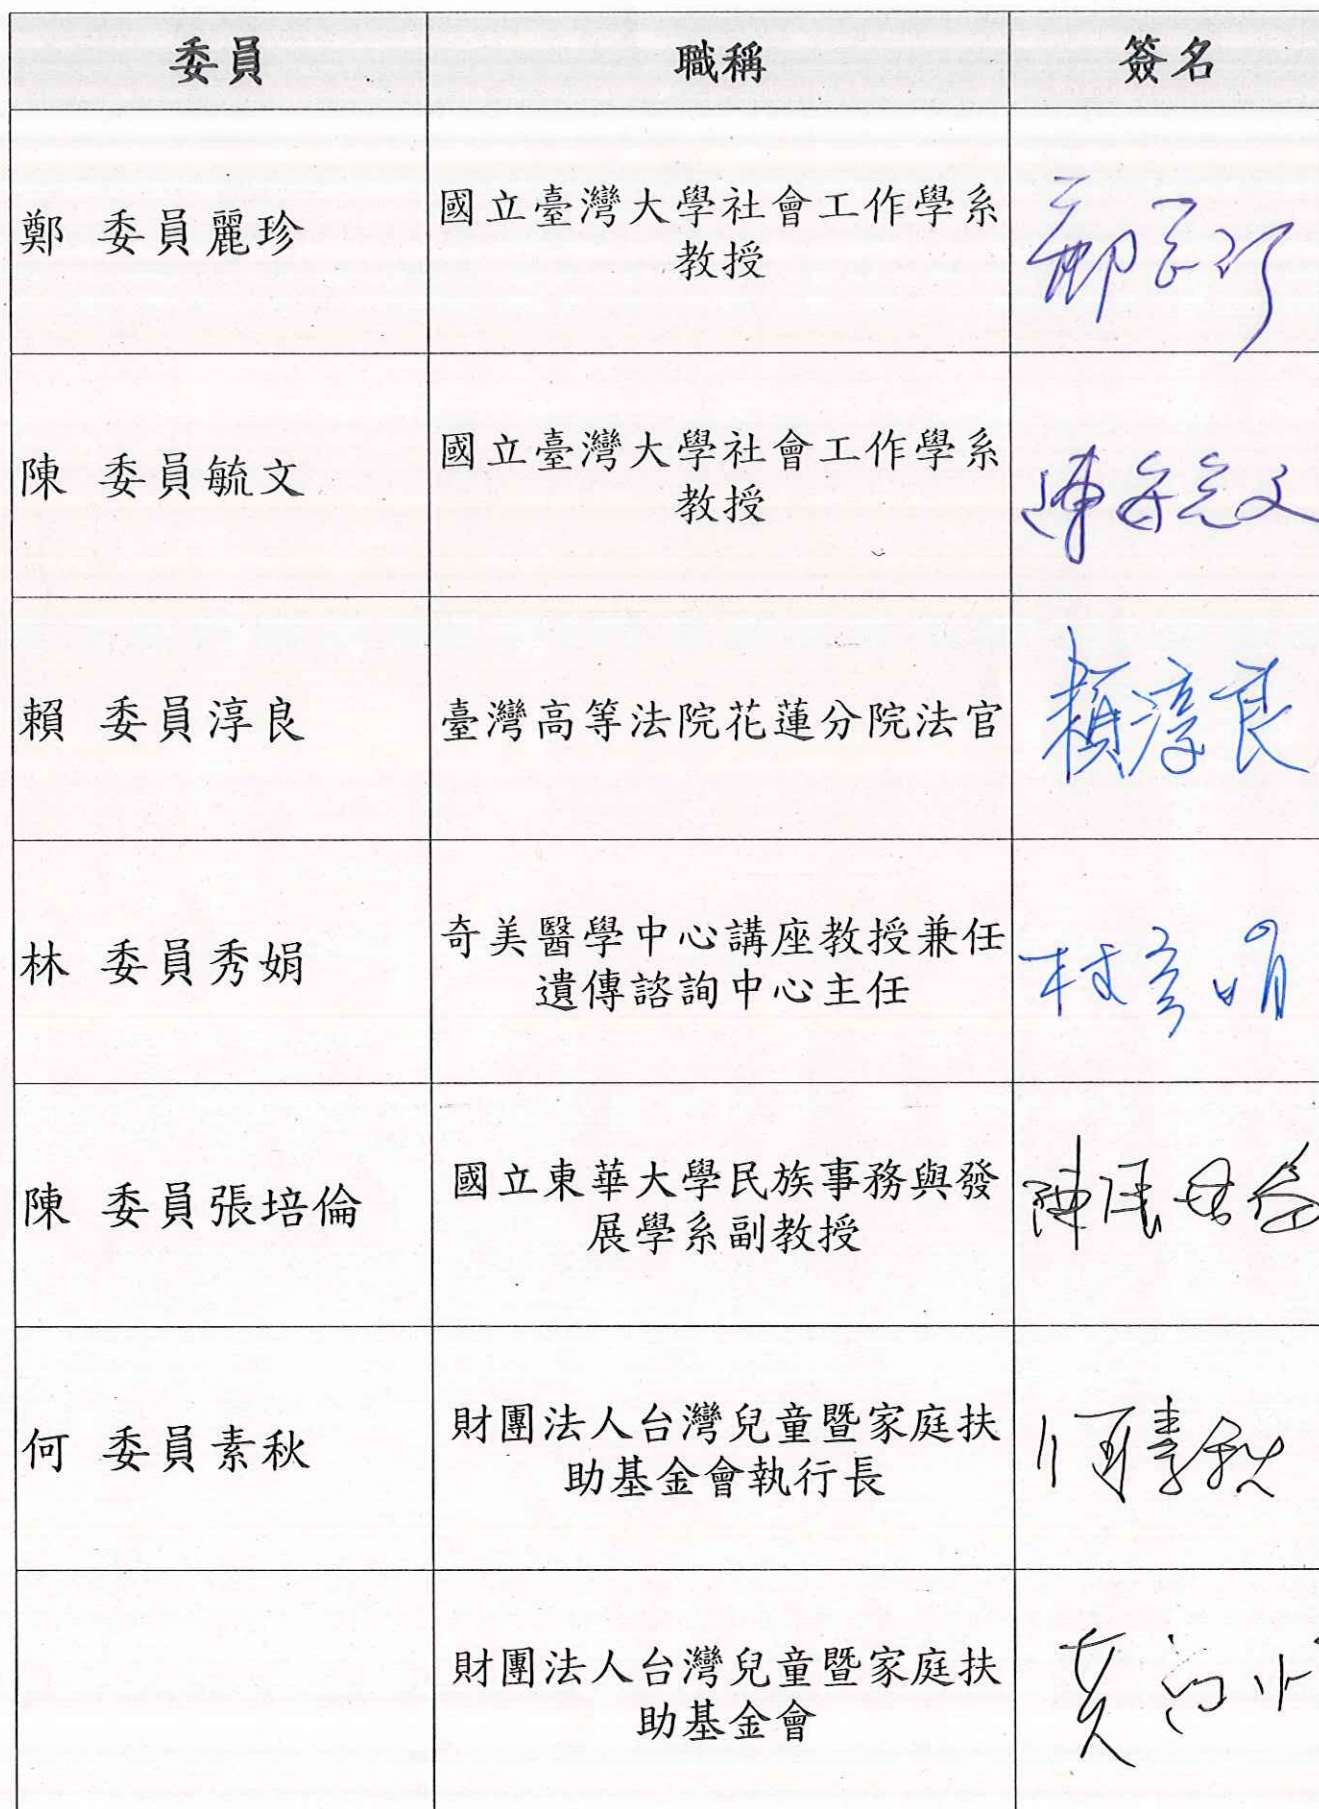 委員 職稱 簽名
鄭 委員麗珍
國立臺灣大學社會工作學系
教授
陳 委員毓文
國立臺灣大學社會工作學系
教授
陳毓文
賴 委員淳良
臺灣高等法院花蓮分院法官
賴淳良
林 委員秀娟
奇美醫學中心講座教授兼任
遺傳諮詢中心主任
林秀娟
陳 委員張培倫
國立東華大學民族事務與發
展學系副教授
何 委員素秋
財團法人台灣兒童暨家庭扶
助基金會執行長
何素秋
財團法人台灣兒童暨家庭扶
助基金會